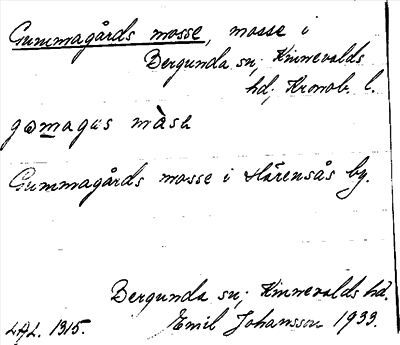 Gummagårds mosse, mosse i
Bergunda sn; Kinnevalds
hd; Kronob. l.
gømagas màsa
Gummagårds mosse i Hårensås by.
Bergunda sn; Kinnevalds hd.
LAL. 1315.
Emil Johansson 1933.